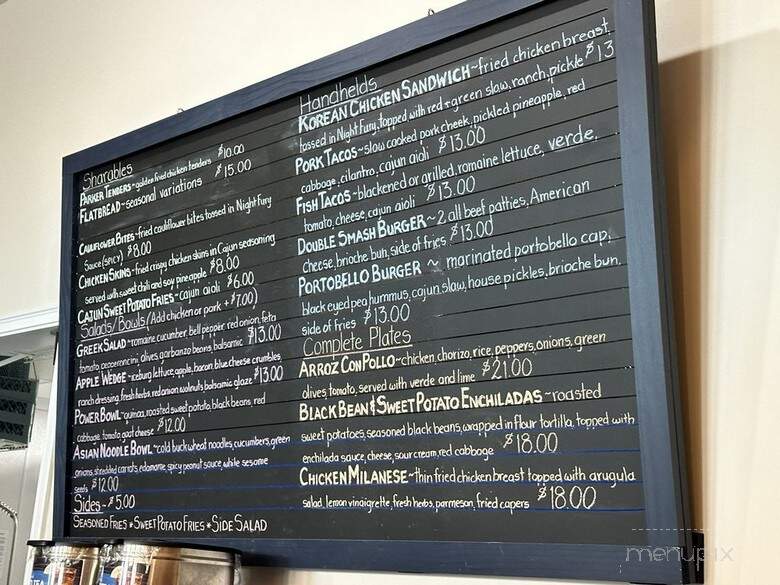 Sharables
PARKER TENDERS~golden fried chicken tenders $10.00
FLATBREAD~seasonal variations $15.00
CAULIFLOWER BITES~fried cauliflower bites tossed in Night Fury
Sauce (SPICY) $8.00
CHICKEN SKINS~fried crispy chicken skins in Cajun seasoning
served with sweet chili and soy pineapple $8.00
CAJUN SWEET POTATO FRIES~cajun aioli $6.00
Salads/Bowls (Add chicken or pork +$7.00)
GREEK SALAD~romaine, cucumber, bell pepper, red onion, feta
tomato, pepperoncini, olives, garbanzo beans, balsamic $13.00
APPLE WEDGE~iceburg lettuce, apple, bacon, blue cheese crumbles
ranch dressing, fresh herbs, red onion, walnuts balsamic glaze $13.00
POWER BOWL~quinoa, roasted sweet potato, black beans, red
cabbage, tomato, goat cheese $12.00
ASIAN NOODLE BOWL~cold buckwheat noodles, cucumbers, green
onions, shredded carrots, edamame, spicy peanut sauce, white sesame
seeds $12.00
Sides~$5.00
SEASONED FRIES * SWEET POTATO FRIES * SIDE SALAD
Handhelds
KOREAN CHICKEN SANDWICH~fried chicken breast
tossed in Night Fury, topped with red+green slaw, ranch, pickle $13
PORK TACOS~slow cooked pork cheek, pickled pineapple, red
cabbage, cilantro, cajun aioli $13.00
FISH TACOS~blackened or grilled, romaine lettuce, verde,
tomato, cheese, cajun aioli $13.00
DOUBLE SMASH BURGER~2 all beef patties, American
cheese, brioche bun, side of fries $13.00
PORTOBELLO BURGER ~ marinated portobello cap,
black eyed pea hummus, cajun slaw, house pickles, brioche bun,
side of fries $13.00
Complete Plates
ARROZ CON POLLO~chicken, chorizo, rice, peppers, onions, green
olives, tomato, served with verde and lime $21.00
BLACK BEAN & SWEET POTATO ENCHILADAS~roasted
sweet potatoes, seasoned black beans, wrapped in flour tortilla, topped with
enchilada sauce, cheese, sour cream, red cabbage $18.00
CHICKEN MILANESE~thin fried chicken breast topped with arugula
salad, lemon vinaigrette, fresh herbs, parmesan, fried capers $18.00
menupix